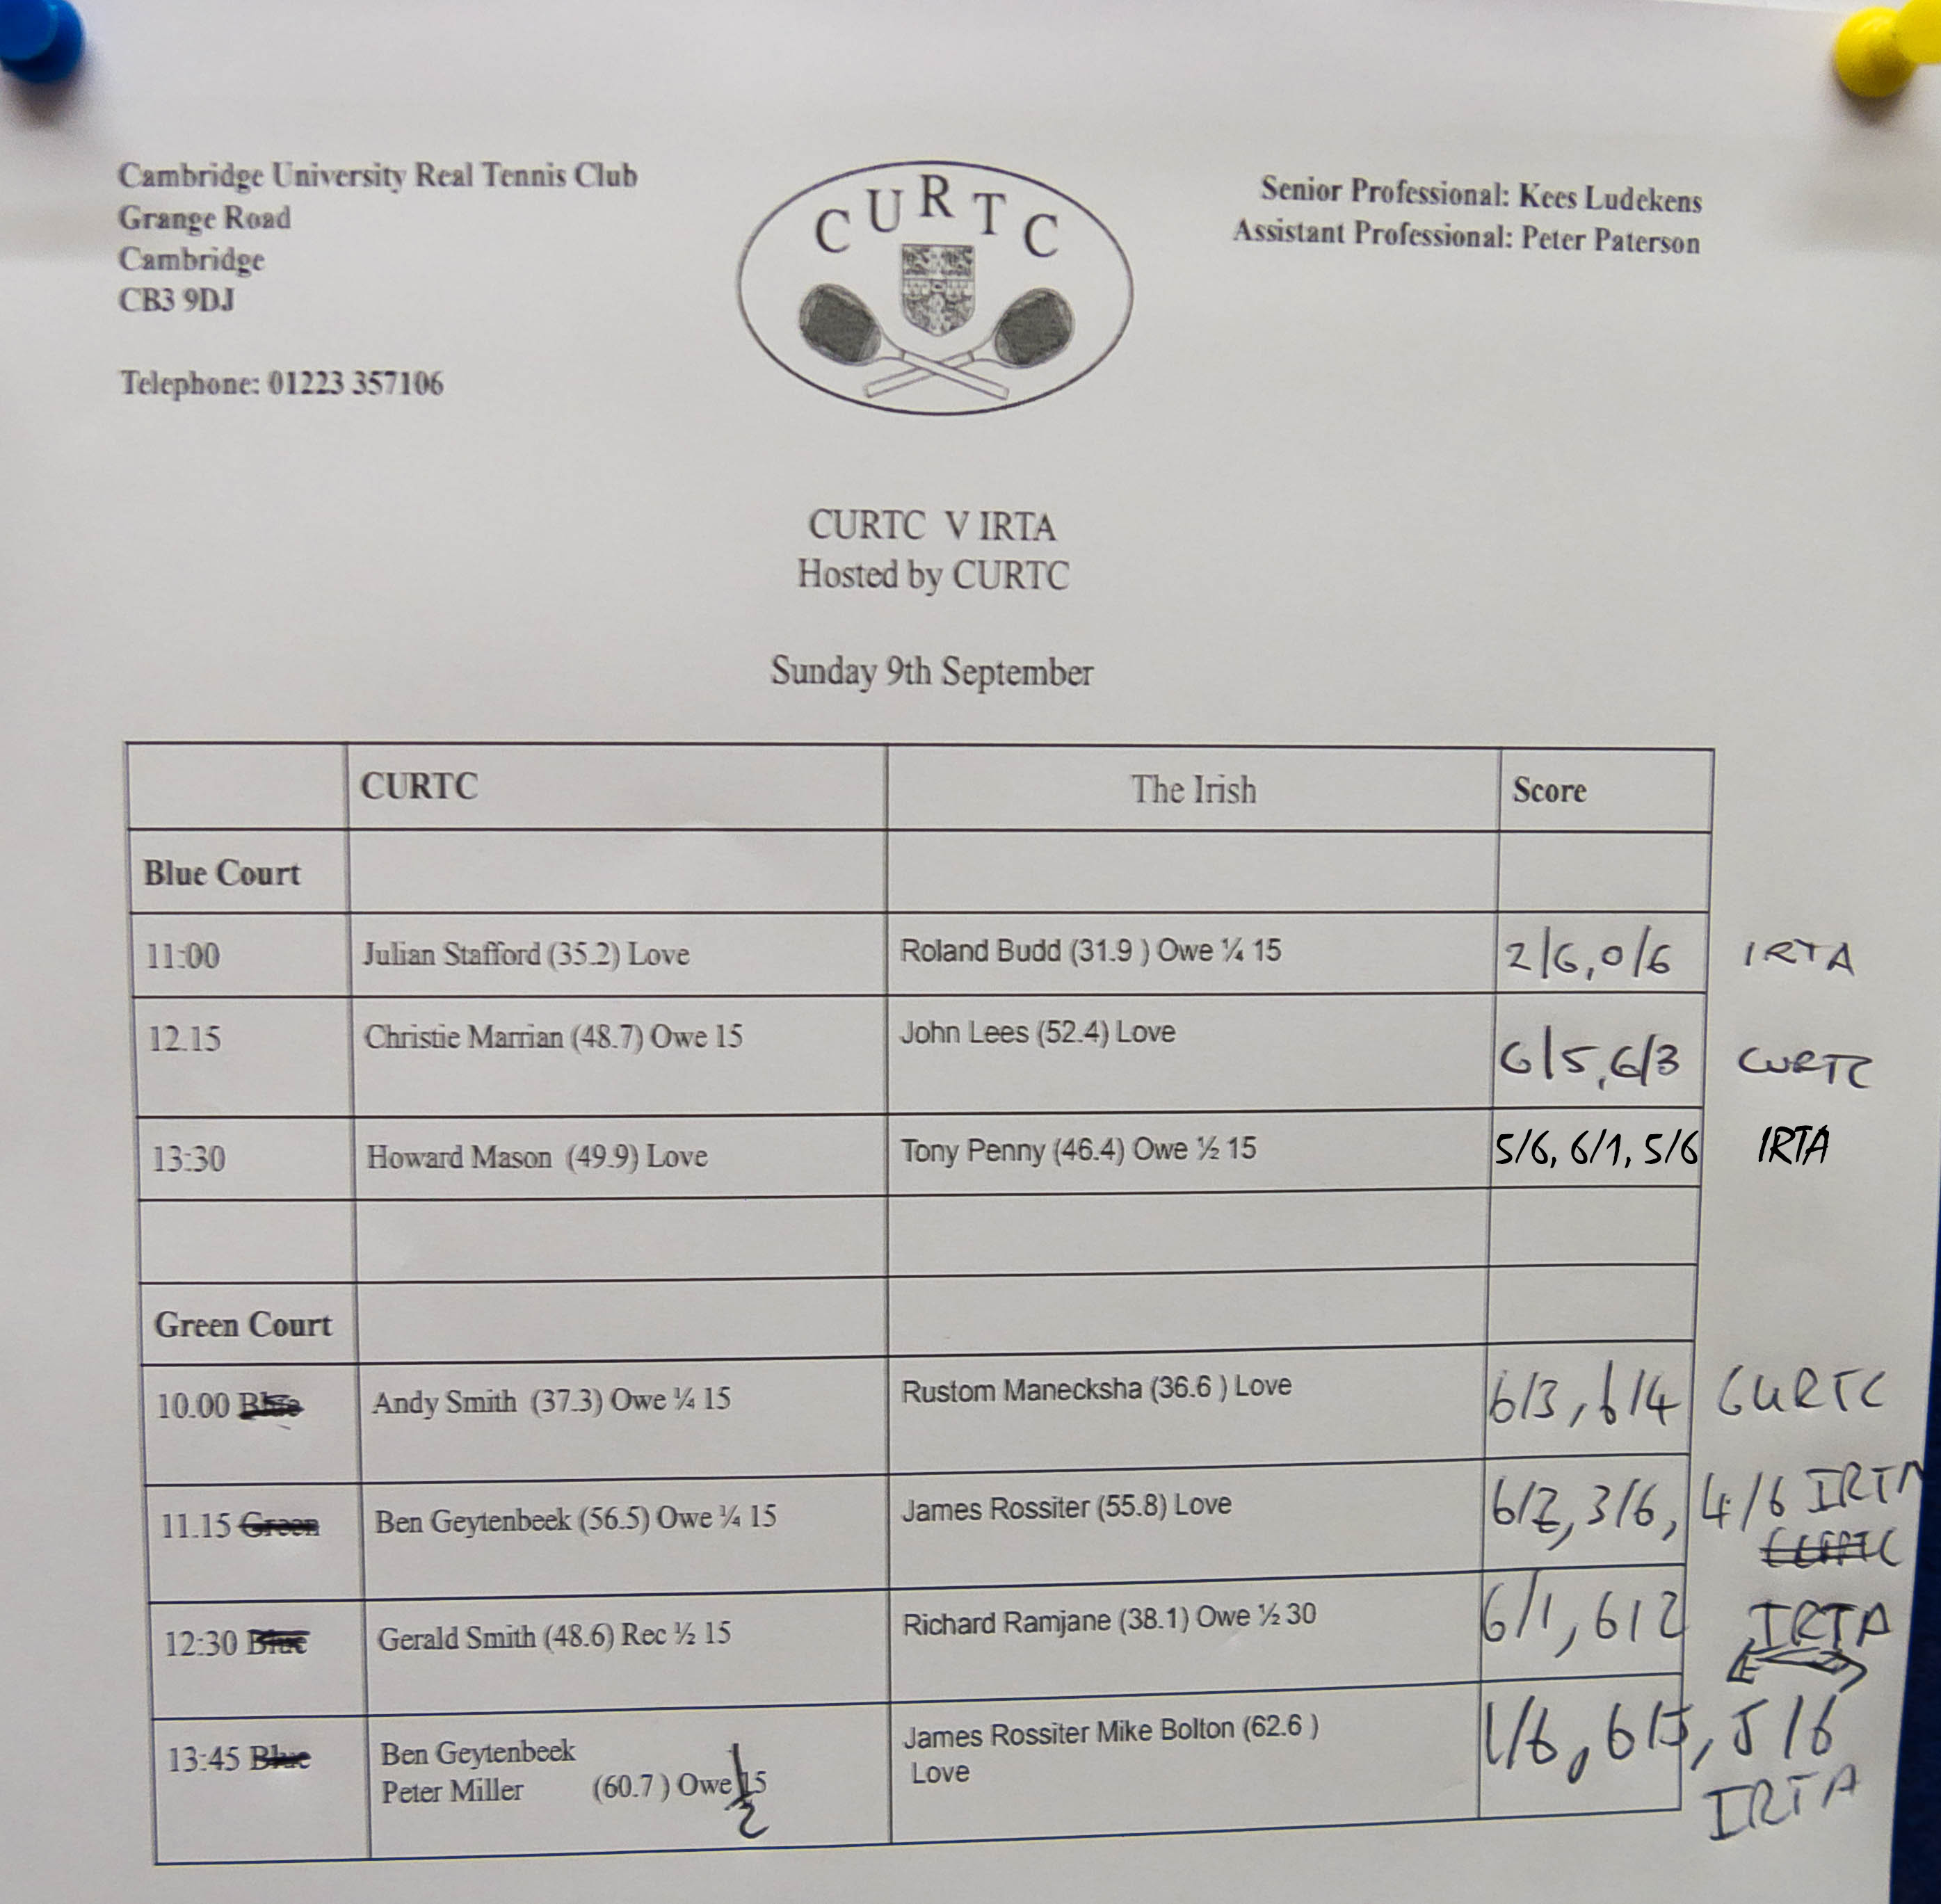 Cambridge University Real Tennis Club
Grange Road
Cambridge
CB3 9DJ
Telephone: 01223 357106
CURTC
Senior Professional: Kees Ludekens
Assistant Professional: Peter Paterson
CURTC V IRTA
Hosted by CURTC
Sunday 9th September
CURTC The Irish Score
Blue Court
11:00 Julian Stafford (35.2) Love Roland Budd (31.9 ) Owe ¼ 15 2/6, 0/6 IRTA
12.15 Christie Marrian (48.7) Owe 15 John Lees (52.4) Love 6/5, 6/3 CURTC
13:30 Howard Mason (49.9) Love Tony Penny (46.4) Owe ½ 15 5/6, 6/1, 5/6 IRTA
Green Court
10.00 Blue Andy Smith (37.3) Owe ¼ 15 Rustom Manecksha (36.6 ) Love 6/3, 6/4 CURTC
11.15 Green Ben Geytenbeek (56.5) Owe ¼ 15 James Rossiter (55.8) Love 6/2, 3/6, 4/6 IRTA
CURTC
12:30 Blue Gerald Smith (48.6) Rec ½ 15 Richard Ramjane (38.1) Owe ½ 30 6/1, 6/2 IRTA
13:45 Blue Ben Geytenbeek James Rossiter Mike Bolton (62.6 ) 1/6, 6/5, 5/6
Peter Miller (60.7 ) Owe ½ 15 Love IRTA